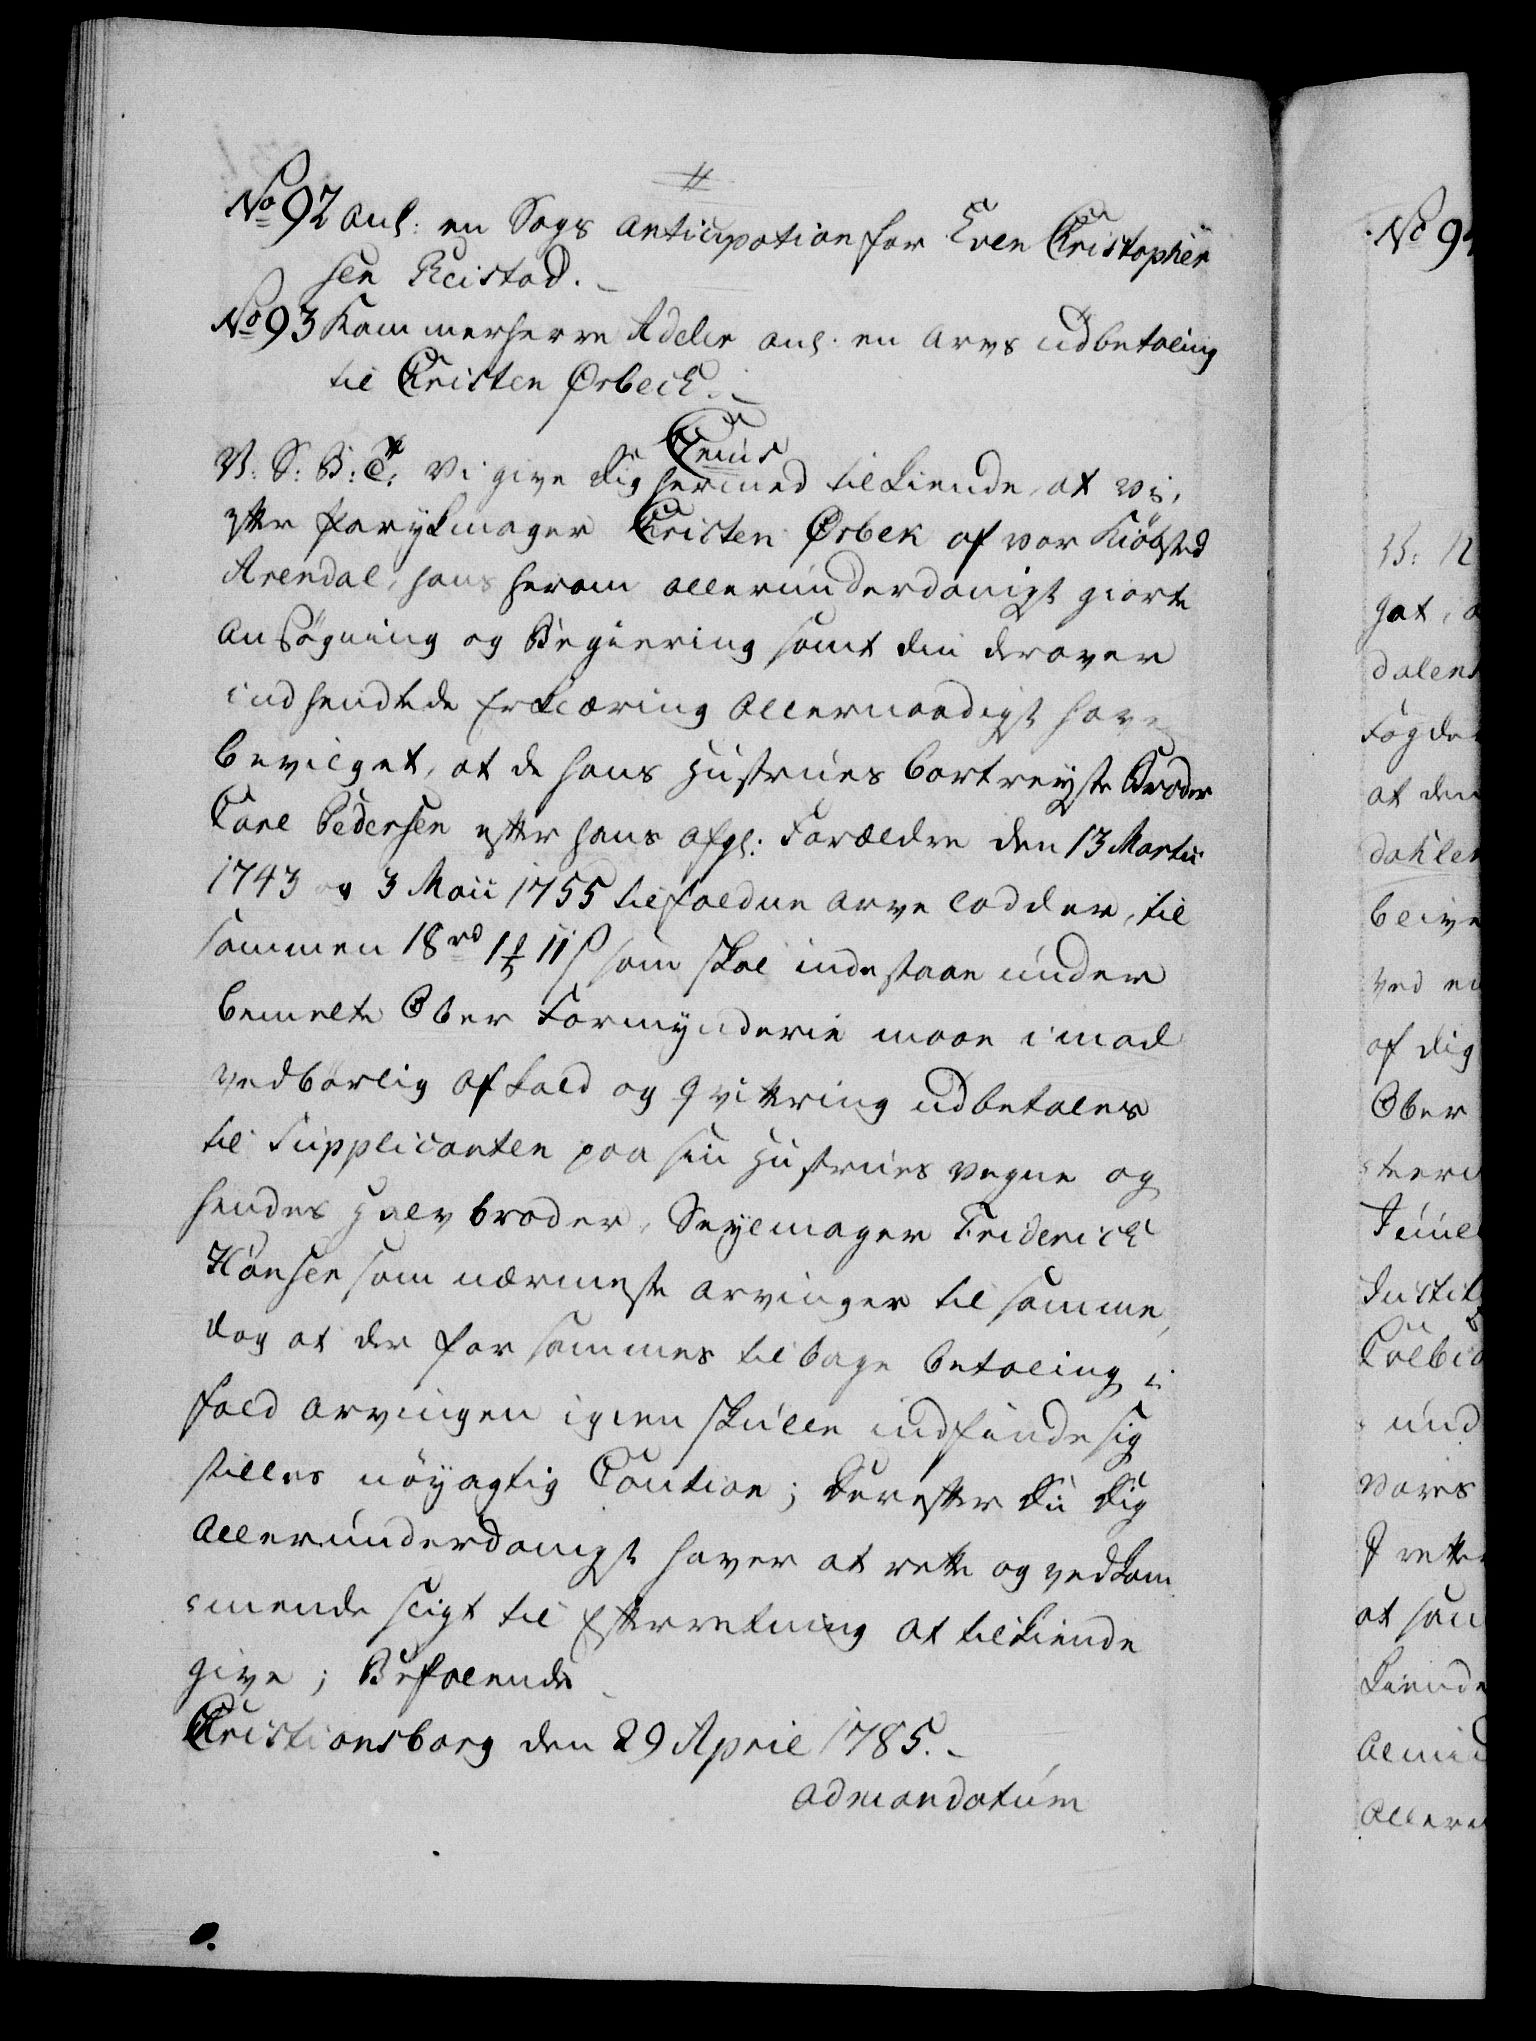 #
No 92 anl: en Sags Anticipation for Even Christopher
sen Reistad.
No 93 Kammerherre Adeler anl. en Arvs udbetaling
til Christen Ørbech.
Cenus
V. S. B: C: Vi give dig hermed tilkiende, at vi,
efter Parykmager Christen Ørbek af vor Kiøbsted
Arendal, hans herom allerunderdanigst giorte
Ansøgning og Begiering samt din derover
indsendte Erklæring Allernaadigst have
bevilget, at de hans Hustrues bortreyste Broder
Carl Pedersen efter hans afgl: Forældre den 13 Martii
1743 og 3 Maii 1755 tilfaldne Arve lodder, til
sammen 18 rd 1 11 ß som skal indestaae under
bemelte Ober Formynderie maae imod
vedbørlig Afkald og Qvittring udbetales
til Supplicanten paa sin Hustrues vegne og
hendes Halvbroder, Seylmager Friderich
Hansen som nærmeste Arvinger til samme,
dog at der for sammes tilbage betaling i
fald Arvingen igien skulle indfinde sig
stilles nøyagtig Caution; Derefter Du Dig
Allerunderdanigst haver at rette og vedkom
mende sligt til Efterretning at tilkiende
give; Befalende
Christiansborg den 29 April 1785.
ad mandatum
No 9
B: N
gat, a
dalens
Fogder
at den
dahler
blive
ved en
af dig
Ober
und
Vores
I rette
at saa
kiende
Almin
Allere